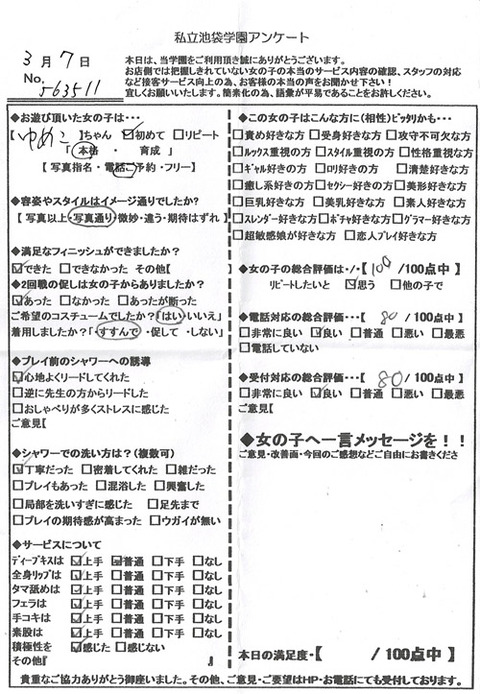 私立池袋学園アンケート
3月7日
No. 563511
本日は、当学園をご利用頂き誠にありがとうございます。
お店側では把握しきれていない女の子の本当のサービス内容の確認、スタッフの対応
など接客サービス向上の為、お客様の本当の声をお聞かせ下さい！
宜しくお願いします。簡素化の為、語彙が平易であることをお許しください。
◆お遊び頂いた女の子は・・・
【ゆめこ】ちゃん ☑初めて □リピート
「 本格 ・ 育成 」
【 写真指名・電話ご予約・フリー】
◆容姿やスタイルはイメージ通りでしたか?
【 写真以上・写真通り・微妙・違う・期待はずれ 】
◆満足なフィニッシュができましたか？
☑できた □できなかった その他【
◆2回戦の促しは女の子からありましたか？
☑あった □なかった □あったが断った
ご希望のコスチュームでしたか？「はい・いいえ」
着用しましたか？「・すすんで ・促して ・しない」
◆プレイ前のシャワーへの誘導
☑心地よくリードしてくれた
□逆に先生の方からリードした
□おしゃべりが多くストレスに感じた
ご意見【
◆シャワーでの洗い方は？（複数可）
☑丁寧だった □密着してくれた □雑だった
□プレイもあった □混浴した □興奮した
□局部を洗いすぎに感じた □足先まで
□プレイの期待感が高まった □ウガイが無い
◆サービスについて
ディープキスは ☑上手 ☑普通 □下手 □なし
全身リップは ☑上手 □普通 □下手 □なし
タマ舐めは ☑上手 □普通 □下手 □なし
フェラは ☑上手 □普通 □下手 □なし
手コキは ☑上手 □普通 □下手 □なし
素股は ☑上手 □普通 □下手 □なし
積極性を ☑感じた □感じない
その他『 』
◆この女の子はこんな方に（相性）ピッタリかも・・・
□責め好きな方 □受身好きな方 □攻守不可欠な方
□ルックス重視の方 □スタイル重視の方 □性格重視な方
□ギャル好きの方 □ロリ好きの方 □清楚好きな方
□癒し系好きの方 □セクシー好きの方 □美形好きな方
□巨乳好きな方 □美乳好きな方 □素人好きな方
□スレンダー好きな方 □ポチャ好きな方 □グラマー好きな方
□超敏感娘が好きな方 □恋人プレイ好きな方
◆女の子の総合評価は・・・【 100 /100点中 】
リピートしたいと ☑思う □他の子で
◆電話対応の総合評価・・・【 80 /100点中】
□非常に良い ☑良い □普通 □悪い □最悪
□電話していない
◆受付対応の総合評価・・・【 80 /100点中】
□非常に良い ☑良い □普通 □悪い □最悪
ご意見【
◆女の子へ一言メッセージを！！
ご意見・改善面・今回のご感想などご自由にお書きくださ
本日の満足度・【 /100点中】
貴重なご協力ありがとう御座いました。その他、ご意見・ご要望はHP・お電話にても受付しております。